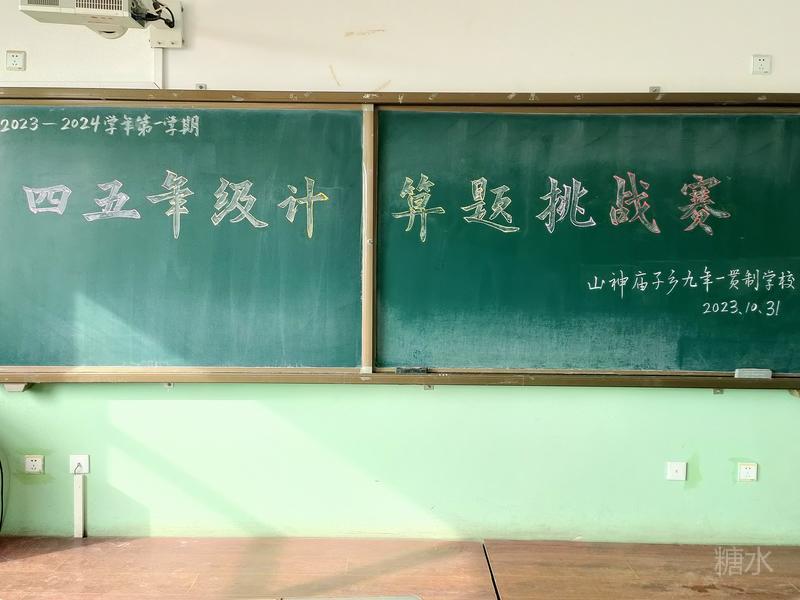 2023-2024学年第一学期
四五年级计算题挑战赛
山神庙子乡九年一贯制学校
2023.10.31
糖水